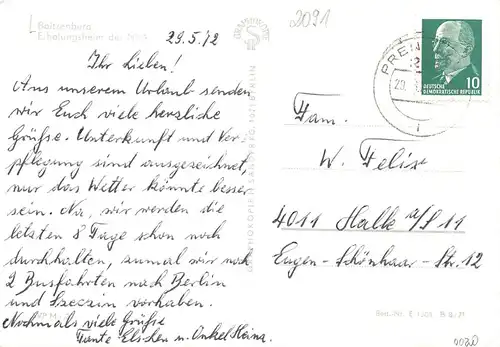 Boitzenburg
Erholungsheim der NVA
29.5.72
2091
Ihr Lieben!
Aus unserem Urlaub senden
wir Euch viele herzliche
Grüße. Unterkunft und Ver-
pflegung sind ausgezeichnet,
nur das Wetter könnte besser
sein. Na, wir werden die
letzten 8 Tage schon noch
durchhalten, zumal wir noch
2 Busfahrten nach Berlin
und Szeczin vorhaben.
Nochmals viele Grüße
Tante Elschen u. Onkel Heinz.
PREN
29.
10
DEUTSCHE
DEMOKRATISCHE REPUBLIK
Fam.
W. Felix
4011 Halle a/S 11
Eugen-Schönhaar-Str. 12
0020